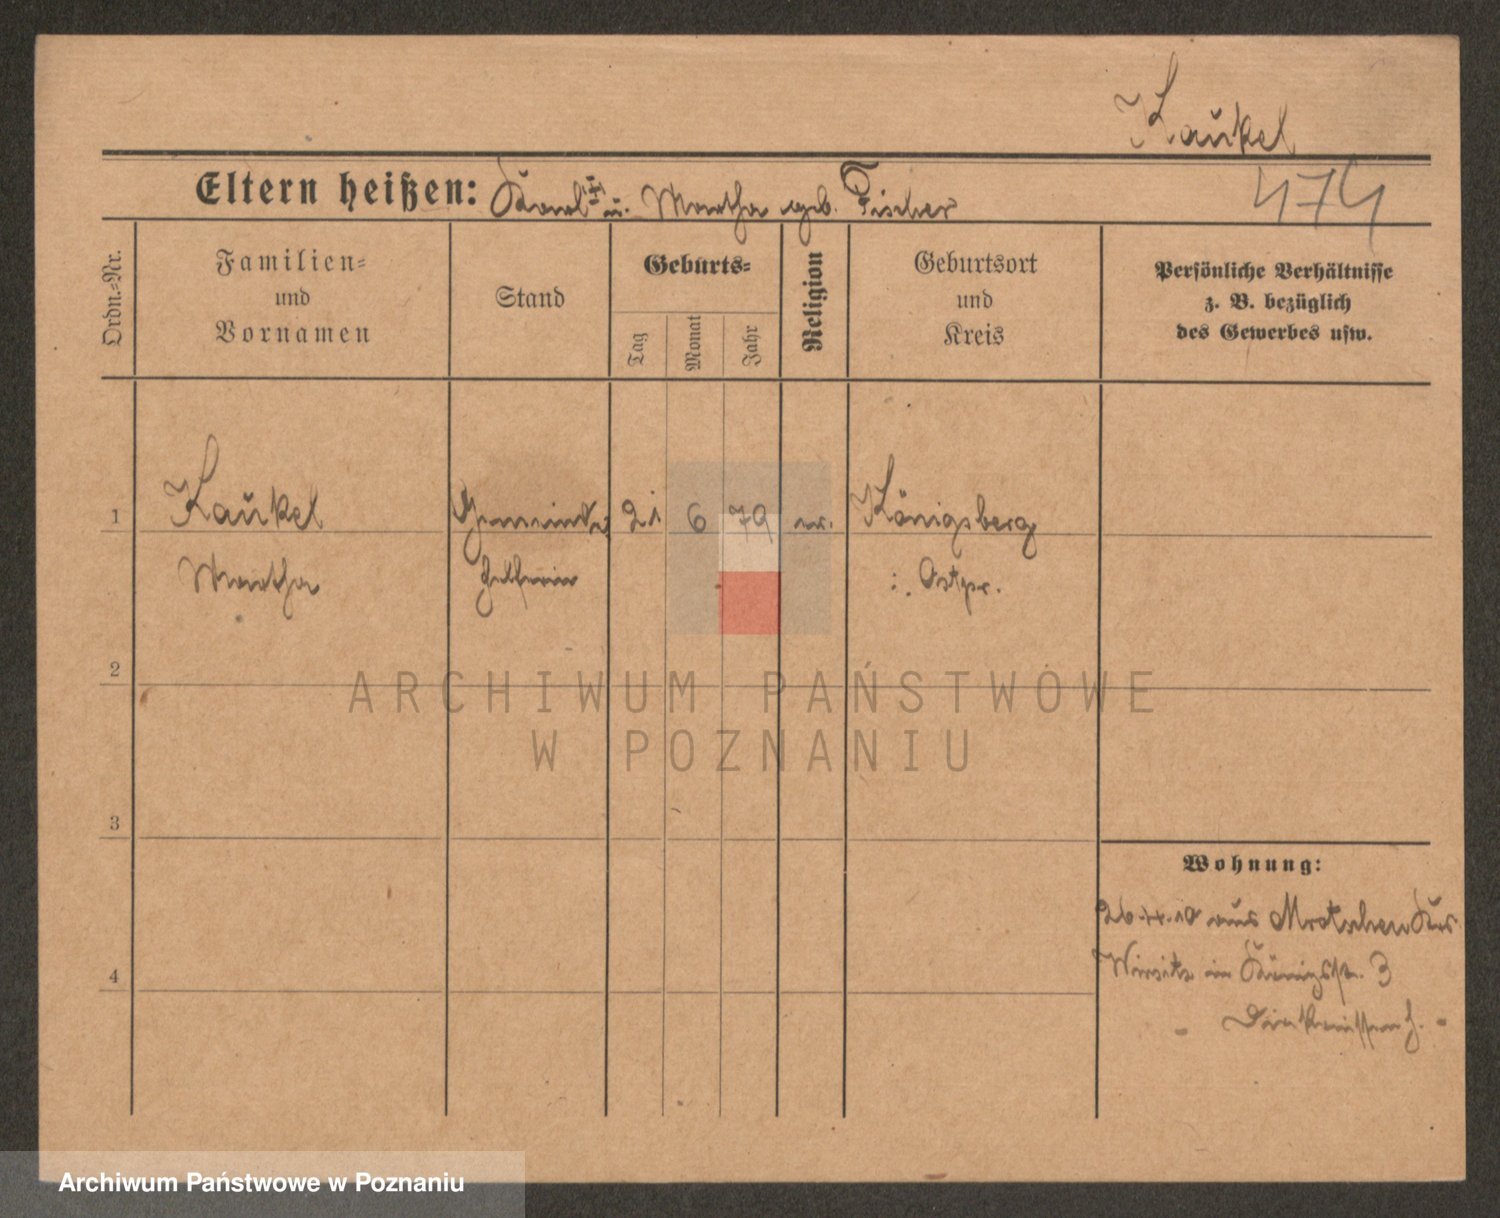 Kaukel
Eltern heißen: Karl u. Martha geb. Fischer 474
Ordn.-Nr.
Familien-
und
Vornamen
Stand
Geburts-
Tag
Monat
Jahr
Religion
Geburtsort
und
Kreis
Persönliche Verhältnisse
z. B. bezüglich
des Gewerbes usw.
1 Kaukel Gemeinde 21 6 79 ev. Königsberg
Martha helferin i. Ostpr.
2
ARCHIWUM PAŃSTWOWE
W POZNANIU
3
Wohnung:
aus Mrotschen Krs
4 Wirsitz in Königstr. 3
- Diakonissenh. -
Archiwum Państwowe w Poznaniu